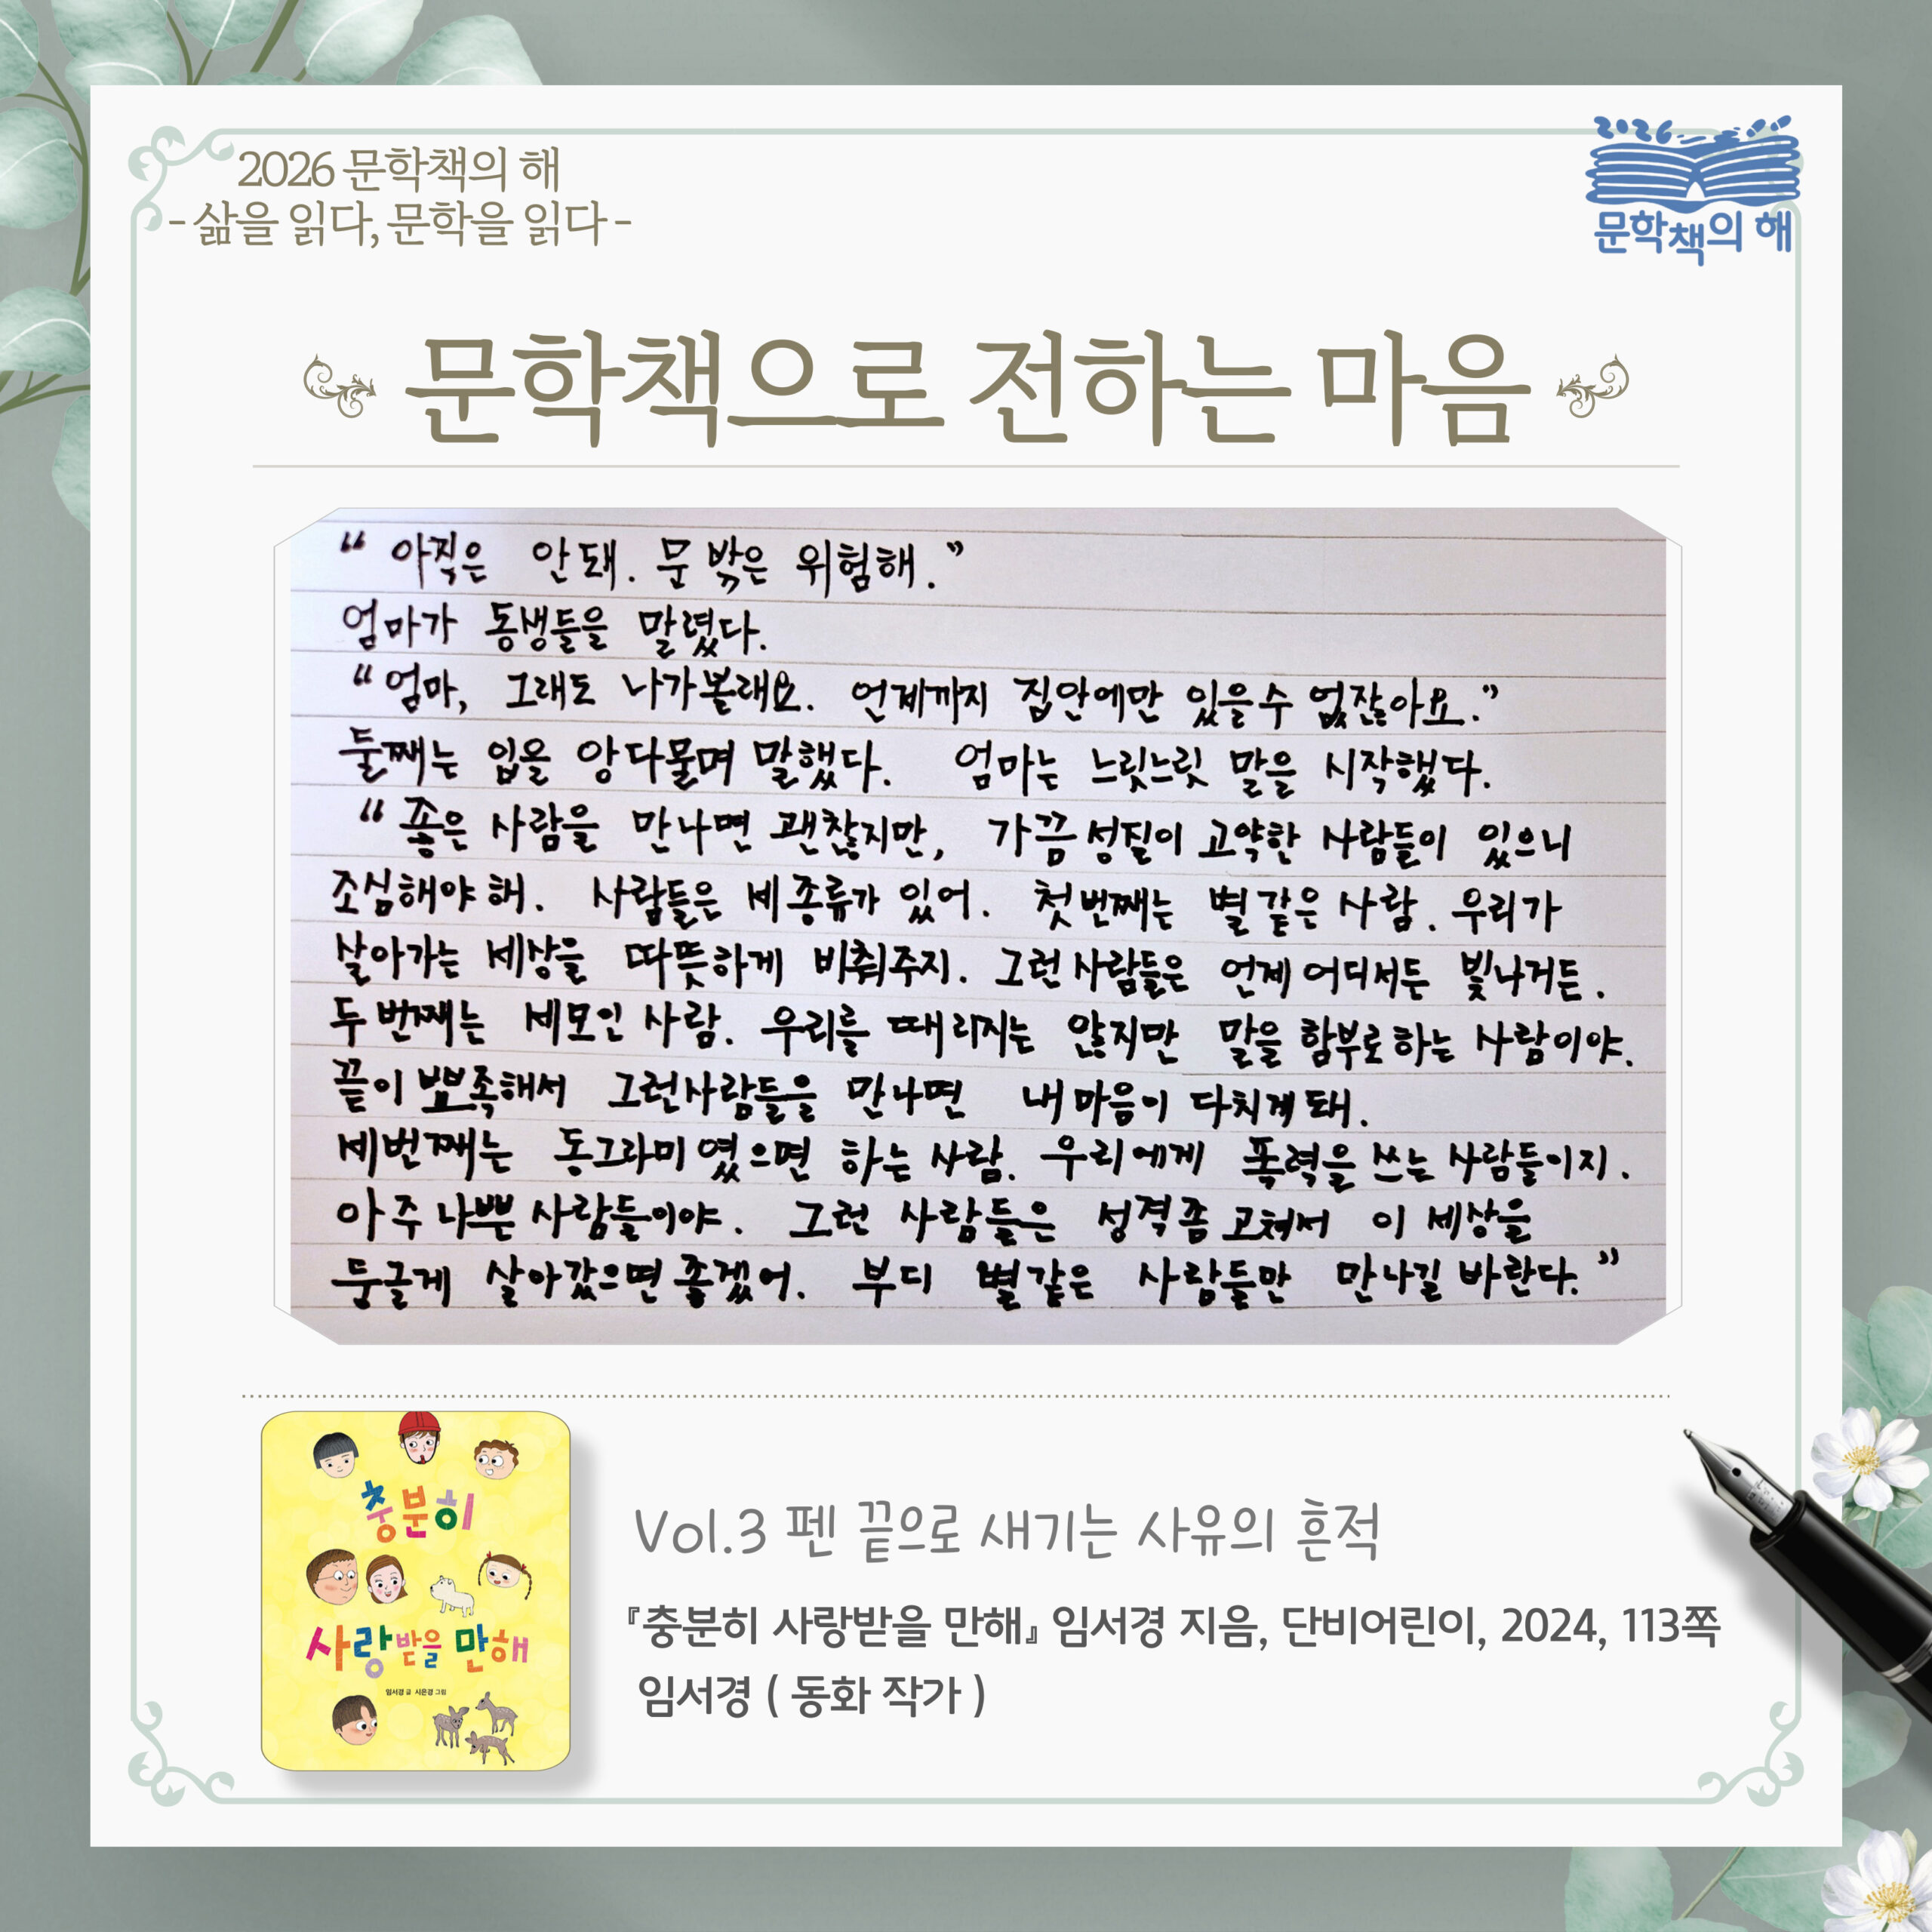 2026 문학책의 해
- 삶을 읽다, 문학을 읽다 -
2026
문학책의 해
문학책으로 전하는 마음
“ 아직은 안돼. 문 밖은 위험해.”
엄마가 동생들을 말렸다.
“엄마, 그래도 나가볼래요. 언제까지 집안에만 있을수 없잖아요.”
둘째는 입을 앙다물며 말했다. 엄마는 느릿느릿 말을 시작했다.
“ 좋은 사람을 만나면 괜찮지만, 가끔 성질이 고약한 사람들이 있으니
조심해야 해. 사람들은 세 종류가 있어. 첫번째는 별같은 사람. 우리가
살아가는 세상을 따뜻하게 비춰주지. 그런 사람들은 언제 어디서든 빛나거든.
두번째는 세모인 사람. 우리를 때리지는 않지만 말을 함부로 하는 사람이야.
끝이 뾰족해서 그런사람들을 만나면 내 마음이 다치게 돼.
세번째는 동그라미였으면 하는 사람. 우리에게 폭력을 쓰는 사람들이지.
아주 나쁜 사람들이야. 그런 사람들은 성격좀 고쳐서 이 세상을
둥글게 살아갔으면 좋겠어. 부디 별같은 사람들만 만나길 바란다.”
충분히
사랑받을 만해
임서경 글 시은경 그림
Vol.3 펜 끝으로 새기는 사유의 흔적
『충분히 사랑받을 만해』 임서경 지음, 단비어린이, 2024, 113쪽
임서경 ( 동화 작가 )